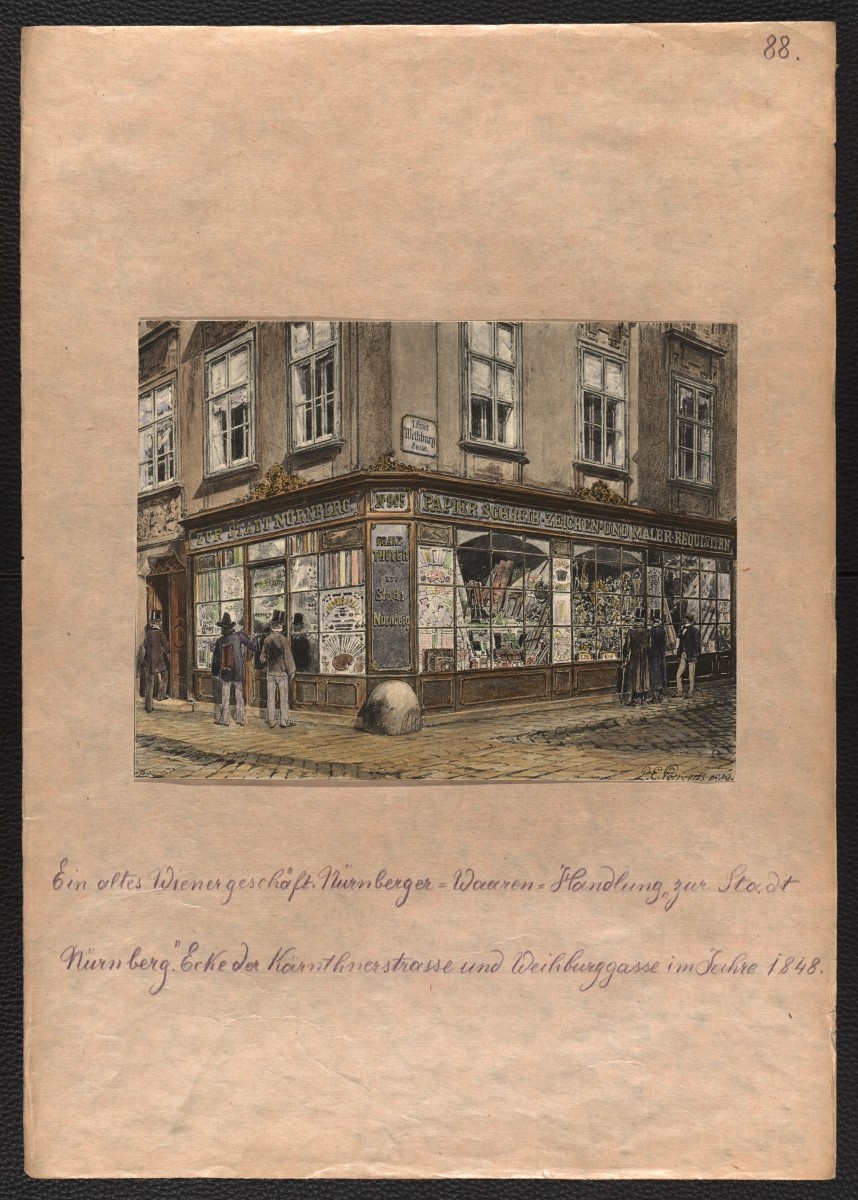 88.
Weihburg
Gasse.
ZUR STADT NÜRNBERG.
No 905
PAPIER SCHREIB-ZEICHEN-UND MALER-REQUISITEN.
FRANZ
THEYER
ZUR
Stadt
Nürnberg
Ein altes Wienergeschäft. Nürnberger=Waaren=Handlung „zur Stadt
Nürnberg.” Ecke der Kärnthnerstrasse und Weihburggasse im Jahre 1848.